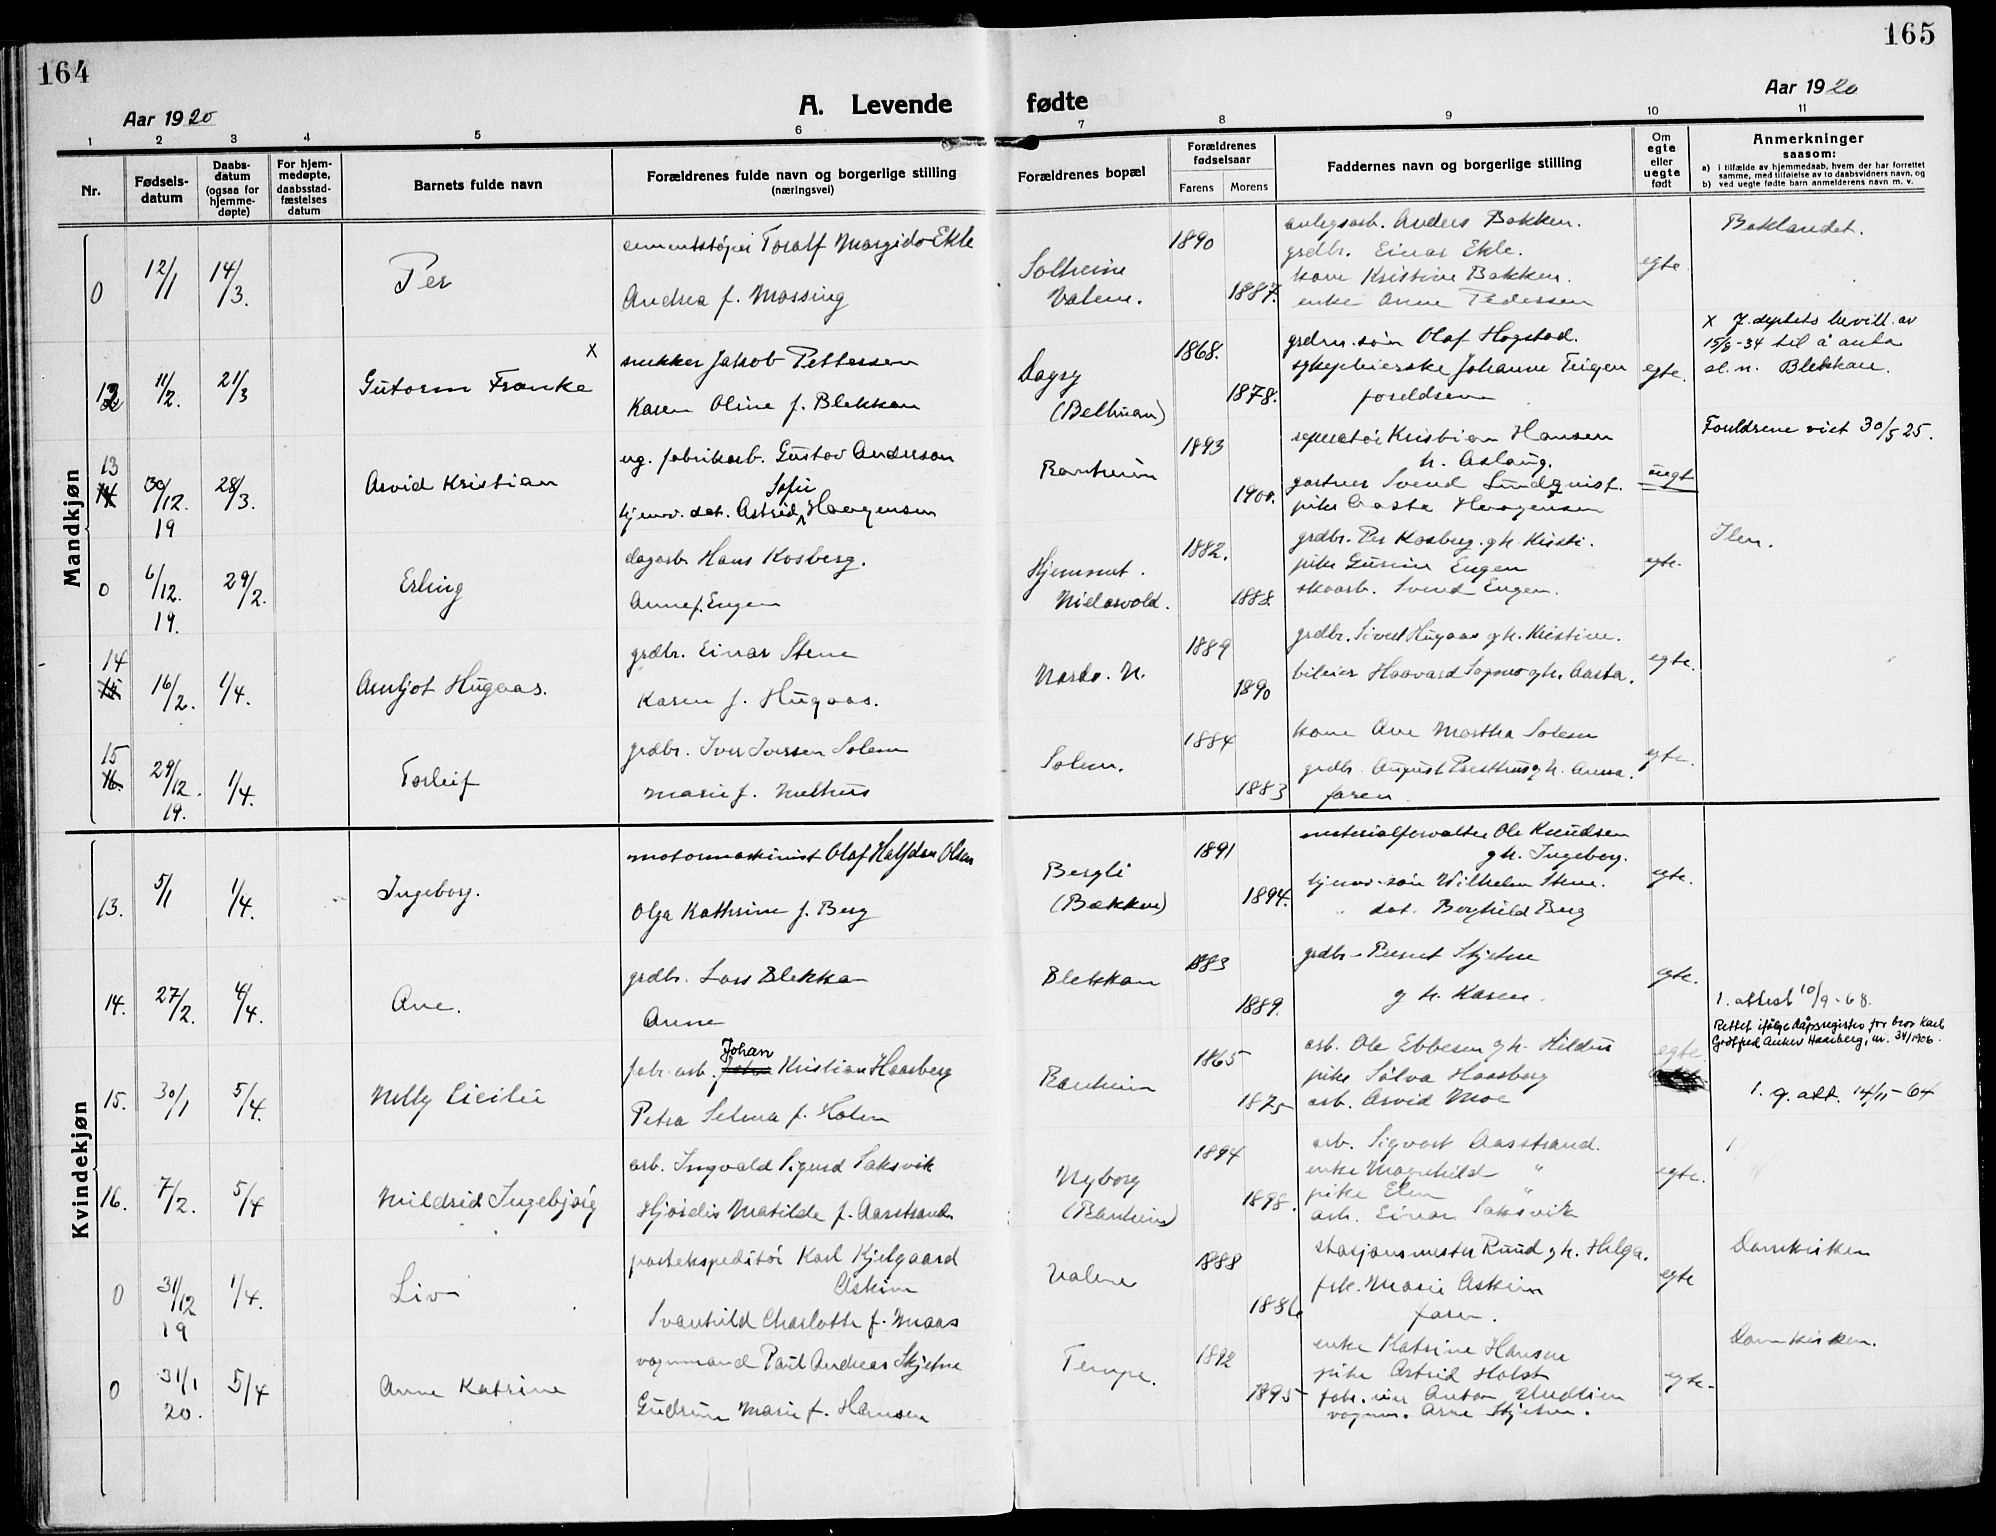 164
165
Aar 1920
A. Levende fødte
Aar 1920
1 2 3 4 5 6 7 8 9 10 11
Nr.
Fødsels-
datum
Daabs-
datum
(ogsaa for
hjemme-
døpte)
For hjem-
medøpte,
daabsstad-
fæstelses
datum
Barnets fulde navn
Forældrenes fulde navn og borgerlige stilling
(næringsvei)
Forældrenes bopæl
Forældrenes
fødselsaar
Farens
Morens
Faddernes navn og borgerlige stilling
Om
egte
eller
uegte
født
Anmerkninger
saasom:
a) i tilfælde av hjemmedaab, hvem der har forrettet
samme, med tilføielse av to daabsvidners navn, og
b) ved uegte fødte barn anmelderens navn m. v.
Mandkjøn
0 12/1 14/3. Per
cementstøper Toralf Margido Ekle
Andrea f. Mossing
Solheim
Valene.
1890
1887.
anlegsarb. Anders Bakken.
grdbr. Einar Ekle.
kone Kristine Bakken.
enke Anne Pedersen
egte
Baklandet.
12 11/2. 21/3 Gutorm Franke x
snekker Jakob Pettersen
Karen Oline f. Blekkan
Dagry
(Bellman)
1868.
1878.
grdm. søn Olaf Hogstad.
sykepleierske Johanne Teigen
foreldrene
egte.
x J. deptets bevill. av
15/8-34 til å anta
sl. n. Blekkan.
13 30/12. 19 28/3. Arvid Kristian
ug. fabrikarb. Gustav Anderson
Sofie
hjemv. dat. Astrid Haagensen
Ranheim
1893
1900.
reperatør Kristian Hansen
h. Aslaug.
gartner Svend Lundqvist.
pike Aasta Haagensen
uegt
Foreldrene viet 30/5 25.
0 6/12. 19. 29/2. Erling
dagarb Hans Kosberg.
Anne f. Engen
Hjemmet.
Nidarvold.
1882.
1888.
grdbr. Per Kosberg. gh. Kirsti.
pike Gurine Engen
skoarb. Svend Engen.
egte.
Ilen.
14 16/2. 1/4. Arnljot Hugaas.
grdbr. Einar Stene
Karen f. Hugaas.
Nardo. N.
1889
1890
grdbr. Sivert Hugaas gh. Kristine.
bileier Haavard Sognes gh. Aasta.
egte.
15 29/12. 19. 1/4. Torleif
grdbr. Iver Iversen Solem
Marie f. Melhus
Solem.
1884
1883
kone Ane Martha Solem
grdbr. August Presthus gh. Anna.
faren.
egte.
Kvindekjøn
13. 5/1 1/4. Ingeborg.
motormaskinist Olaf Halfdan Olsen
Olga Kathrine f. Berg
Bergli
(Bækken)
1891
1894.
materialforvalter Ole Knudsen
gh. Ingeborg.
hjemv. søn Wilhelm Stene.
" dat. Borghild Berg
egte.
14. 27/2. 4/4. Ane.
grdbr. Lars Blekkan
Anne
Blekkan
1883
1889.
grdbr. Bernt Skjetne
g h. Karen.
egte.
1. attest 10/9-68.
15. 30/1 5/4. Nelly Cicilie
Johan
fabr. arb. Kristian Haarberg
Petra Selma f. Holen
Ranheim
1865
1875
arb. Ole Ebbesen gh. Hildur
pike Sølva Haarberg
arb. Arvid Moe
egte.
Rettet ifølge dåpsregistro for bror Karl
Gotfred Anker Haarberg, nr. 34/1906.
1. g. att. 14/11-64
16. 7/2. 5/4 Mildrid Ingebjørg
arb. Ingvald Sigurd Saksvik
Hjørdis Matilde f. Aarstrand
Nyborg
(Ranheim)
1894
1898.
arb. Sigvart Aasstrand.
enke Magnhild "
pike Elen "
arb. Einar Saksvik
egte.
0 31/12 19 1/4. Liv
postekspeditør Karl Kjelgaard
Askim
Svanhild Charlotte f. Maas
Valene
1888
1886
stasjonsmester Ruud gh. Helga.
frk. Marie Askim
faren.
egte
Domkirken
0 31/1 20. 5/4 Anne Katrine
vognmand Paul Andreas Skjetne
Gudrun Marie f. Hansen
Tempe.
1892
1895
enke Katrine Hansen
pike Astrid Holst
fabr. eier Anton Mudlien
vognm. Arne Skjetne.
egte.
Domkirken.